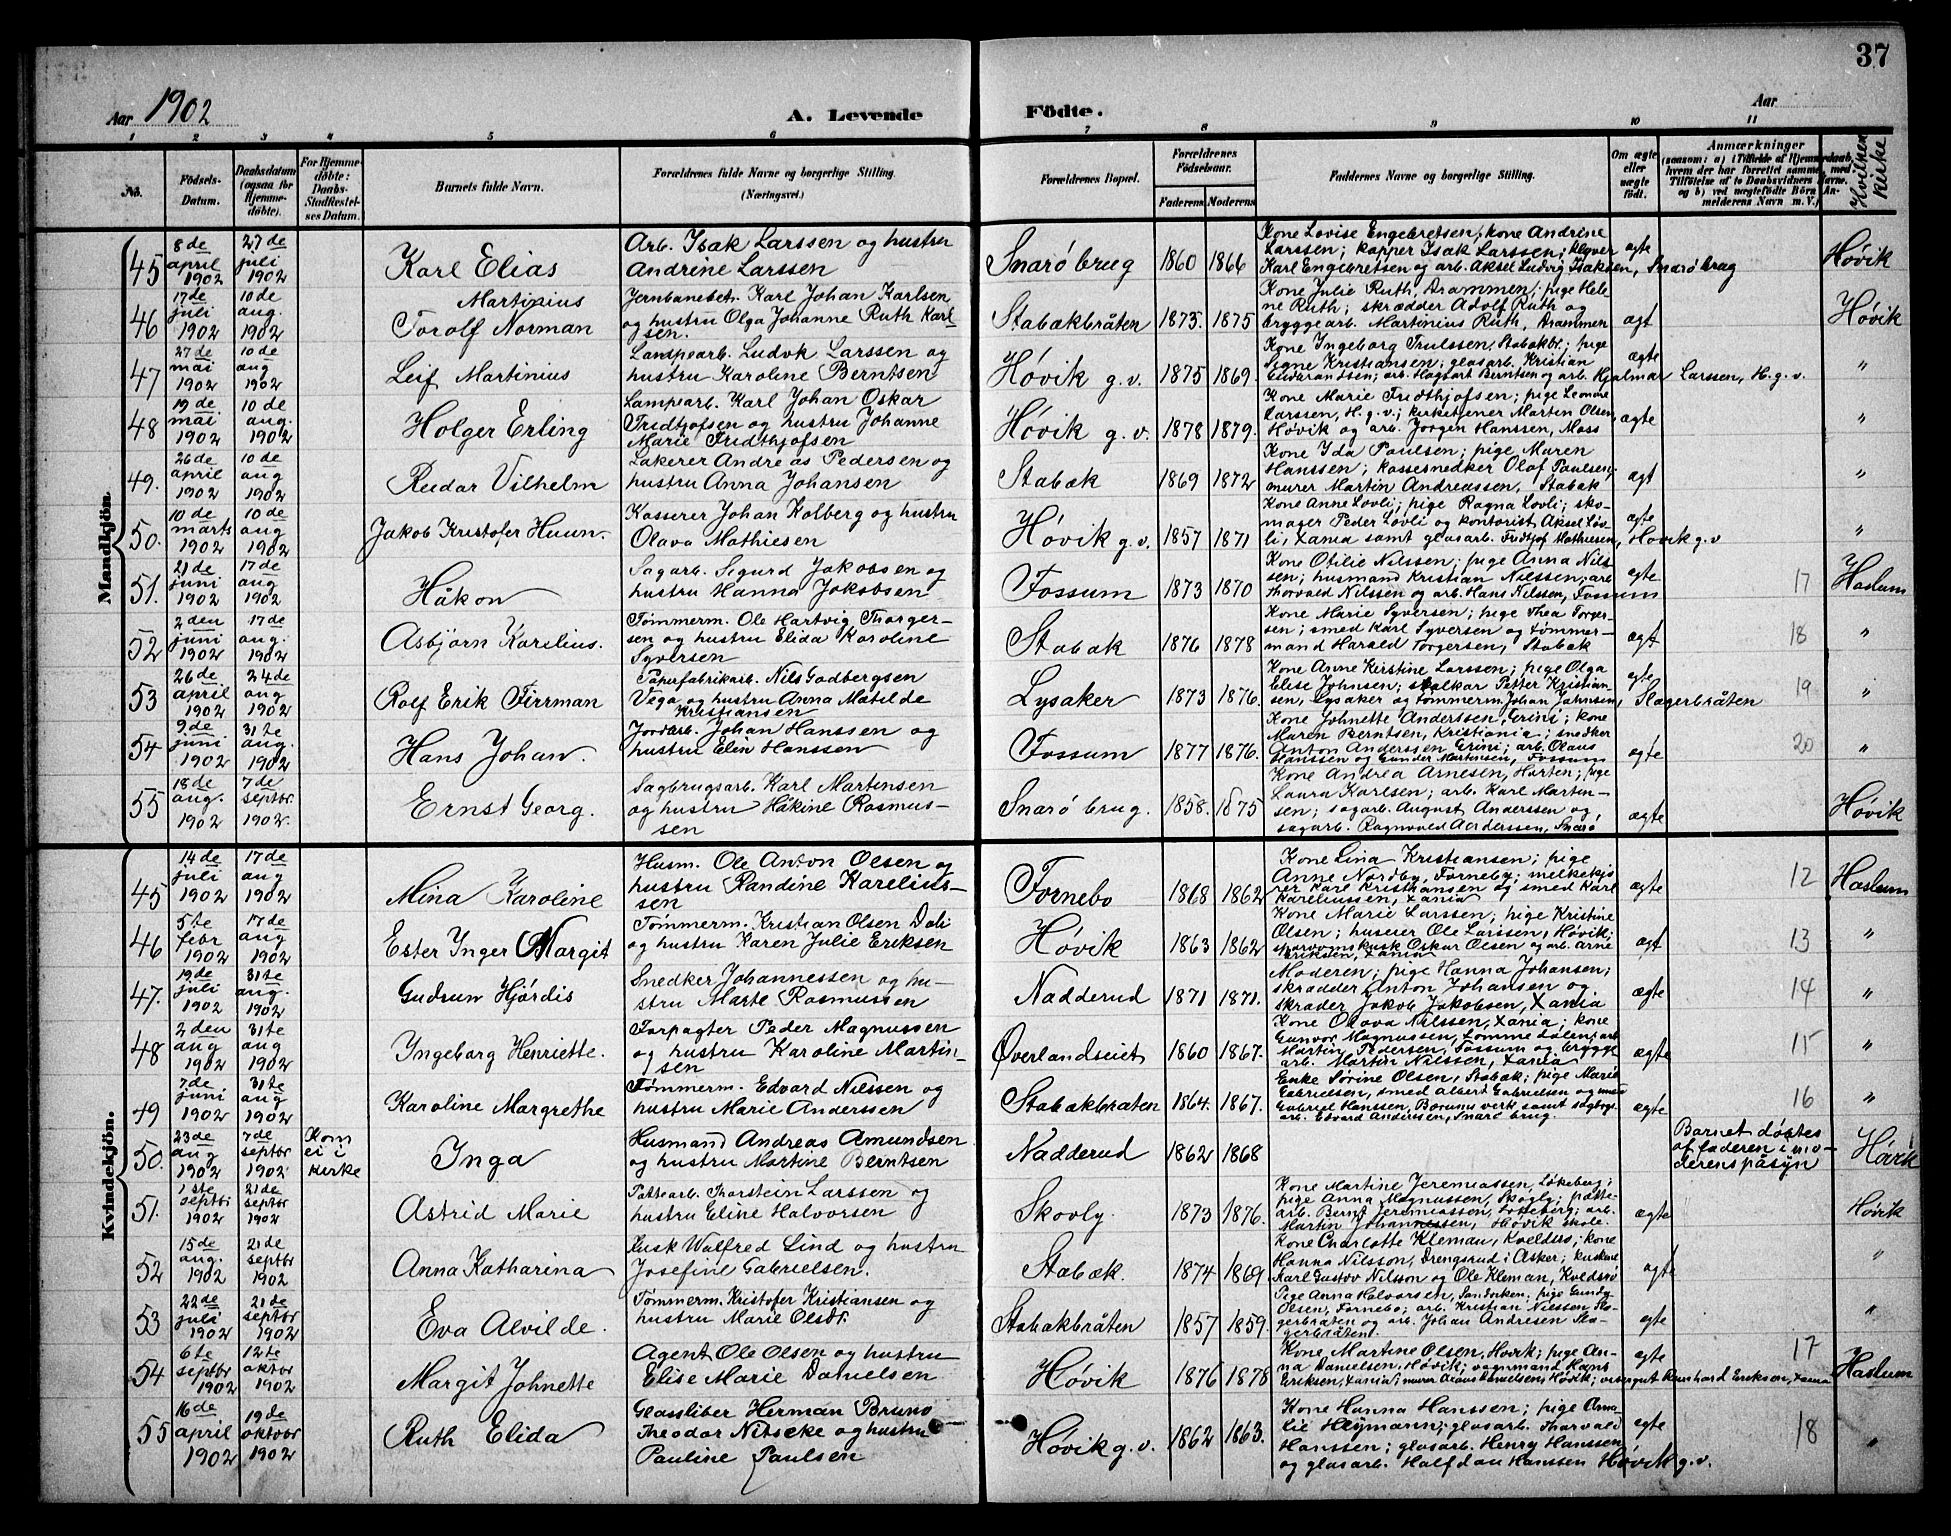 37
Aar 1902
A. Levende Födte.
Aar
1 2 3 4 5 6 7 8 9 10 11
No.
Födsels-Datum.
Daabsdatum (ogsaa for Hjemmedöbte).
For Hjemmedöbte: Daabs-Stadfæstelses Datum.
Barnets fulde Navn.
Forældrenes fulde Navne og borgerlige Stilling. (Næringsvei.)
Forældrenes Bopæl.
Forældrenes Födselsaar.
Faderens Moderens
Faddernes Navne og borgerlige Stilling.
Om ægte eller uægte födt.
Anmærkninger
Hvilken Kirke
Mandkjön.
45 8de april 1902 27de juli 1902 Karl Elias Arb. Isak Larssen og hustru Andrine Larssen Snarö brug 1860 1866 Kone Lovise Engebretsen, kone Andrine Larssen; kapper Isak Larssen; Karl Engebretsen og arb. Aksel Ludvig Isaksen, Snarö brug ægte Høvik
46 17de juli 1902 10de aug. 1902 Martinius Torolf Norman Jernbanebet. Karl Johan Karlsen og hustru Olga Johanne Ruth Karlsen. Stabækbråten 1873. 1875 Kone Julie Ruth, Drammen; pige Helene Ruth; skrædder Adolf Ruth og bryggearb. Martinius Ruth, Drammen ægt Høvik
47 27de mai 1902 10de aug 1902 Leif Martinius Lampearb. Ludvk Larssen og hustru Karoline Berntsen Høvik g.v. 1875 1869. Kone Ingeborg Trulssen, Stabækbr.; pige Signe Kristiansen; glasarb. Kristian arb. Hagbart Berntsen og arb. Hjalmar Larssen, H.g.v. ægte "
48 19de mai 1902 10de aug. 1902 Holger Erling Lampearb. Karl Johan Oskar Fridtjofsen og hustru Johanne Marie Fridthjofsen Høvik g.v. 1878 1879. Kone Marie Fridthjofsen; pige Leonore Larssen, H.g.v.; kirketjener Martin Olsen, Høvik og arb. Jörgen Hanssen, Moss ægte "
49. 26de april 1902 10de aug 1902 Reidar Vilhelm Lakerer Andreas Pedersen og hustru Anna Johansen Stabæk 1869 1872 Kone Ida Paulsen; pige Maren Hanssen; kassesnedker Olaf Paulsen; murer Martin Andreassen, Stabæk ægt "
50. 10de marts 1902 10de aug 1902 Jakob Kristofer Huun. Kasserer Johan Kolberg og hustru Olava Mathiesen Høvik g.v. 1857 1871 Kone Anne Lovli; pige Ragna Lovli; skomager Peder Lovli og kontorist Aksel Lovli, Xania samt glasarb. Fridtjof Mathiesen, Høvik g.v ægte "
51. 21de juni 1902 17de aug 1902 Håkon Sagarb. Sigurd Jakobsen og hustru Hanna Jakobsen Fossum 1873 1870 Kone Otilie Nilssen; pige Anna Nilssen; husmand Kristian Nilssen; arb Thorvald Nilssen og arb. Hans Nilssen, Fossum ægte 17 Haslum
52 2den juni 1902 17de aug. 1902 Asbjörn Karelius. Tømmerm. Ole Hartvig Thorgersen og hustru Elida Karoline Syversen Stabæk 1876 1878 Kone Marie Syversen; pige Thea Torgersen; smed Karl Syversen og tømmermand Harald Torgersen, Stabæk ægt 18 "
53 26de april 1902 24de aug 1902 Rolf Erik Firrman Papirfabrikarb. Nils Godbergsen Vega og hustru Anna Matilde Kristiansen Lysaker 1873 1876. Kone Anne Kirstine Larssen; pige Olga Elise Johnsen; Petter Kristiansen, Lysaker og tømmerm. Johan Johnsen, Slagerbråten ægte 19 "
54 9de juni 1902 31te aug. 1902 Hans Johan. Jordarb. Johan Hanssen og hustru Elin Hanssen Fossum 1877 1876. Kone Johnette Anderssen, Grini; kone Maren Berntsen, Kristiania; snedker Anton Anderssen Grini; arb. Olaus Hanssen og Gunder Martinsen, Fossum ægte 20 "
55 18de aug. 1902 7de septbr. 1902. Ernst Georg. Sagbrugsarb. Karl Martinsen og hustru Håkine Rasmussen Snarö brug. 1858. 1875 Kone Andrea Arnesen, Hurten; pige Laura Karlsen; arb. Karl Martensen; sagarb. August Anderssen og sagarb. Ragnvald Anderssen, Snarö ægte Høvik
Kvindekjön.
45 14de juli 1902 17de aug 1902 Mina Karoline Husm. Ole Anton Olsen og hustru Randine Kareliussen Fornebo 1868 1862 Kone Lina Kristiansen; pige Anne Nordby, Forneby; melkekjører Karl Kristiansen og smed Karl Kareliussen, Xania ægte 12 Haslum
46 5te febr 1902 17de aug 1902 Ester Inger Margit Tømmerm. Kristian Olsen Dali og hustru Karen Julie Eriksen Høvik 1863 1862 Kone Marie Larssen; pige Kristine Olsen; huseier Ole Larssen, Høvik; sporvognskusk Oskar Olsen og arb. Arne Eriksen, Xania ægt 13 "
47. 19de juli 1902 31te aug. 1902 Gudrun Hjórdis Snedker Johannessen og hustru Marte Rasmussen Nadderud 1871 1871. Moderen; pige Hanna Johansen; skrædder Anton Johansen og skræder Jakob Jakobsen, Xania ægte 14 "
48 2den aug 1902 31te aug 1902 Ingeborg Henriette. Forpagter Peder Magnussen og hustru Karoline Martinsen Øverlandseiet 1860 1867. Kone Olava Nilssen, Xania; kone Gunvor Magnussen, Lommedalen; arb Martin Pedersen, Fossum og bryggearb. Martin Nilssen, Xania ægte 15 "
49 7de juni 1902 31te aug 1902 Karoline Margrethe Tømmerm. Edvard Nilssen og hustru Marie Anderssen Stabækbråten 1864. 1867. Enke Sörine Olsen, Stabæk; pige Marie Gabrielsen, smed Albert Gabrielsen og Gabriel Hanssen, Bærums verk, samt sagbrgs. arb. Edvard Anderssen, Snarö brug. ægte 16 "
50. 23de aug 1902 7de septbr 1902 Kom ei i kirke Inga Husmand Andreas Amundsen og hustru Martine Berntsen Nadderud 1862 1868 Barnet døbtes af faderen i moderens påsyn Høvik
51. 1ste septbr 1902 21de septbr 1902 Astrid Marie Pottearb. Thorstein Larssen og hustru Eline Halvorsen Skovly. 1873 1876. Kone Martine Jeremiassen, Løkeberg; pige Anna Magnussen, Skogly; pottearb. Bernt Jeremiassen, Løkeberg; arb. Martin Johannessen, Høvik skole. ægte Høvik
52 15de aug. 1902 21de septbr 1902 Anna Katharina Kusk Walfred Lind og hustru Josefine Gabrielsen. Stabæk. 1874 1869 Kone Charlotte Kleman, Kveldsrö; kone Hanna Nilsson, Drengsrud i Asker; kuskene Karl Gustov Nilsson og Ole Kleman, Kveldsrö ægte "
53 22de juli 1902 21de septbr 1902 Eva Alvilde. Tømmerm. Kristofer Kristiansen og hustru Marie Olsdr. Stabækbråten 1857 1859. Pige Anna Halvorsen, Sandviken; pige Gunda Olsen, Fornebo; arb. Kristian Nilssen Slagerbråten og arb. Johan Andresen Slagerbråten. ægte "
54 6te septbr 1902 12te oktbr 1902 Margit Johnette Agent Ole Olsen og hustru Elise Marie Danielsen Høvik 1876 1878 Kone Martine Olsen, Høvik; pige Anna Danielsen, Høvik; vognmand Hans Eriksen, Xania; murer Olaus Danielsen, Høvik; Reinhard Eriksen, Xania ægte 17 Haslum
55 16de april 1902 19de oktobr 1902 Ruth Elida Glassliber Herman Bruno Theodor Nitscke og hustru Pauline Paulsen Høvik g.v. 1862 1863. Kone Hanna Hanssen; pige Amalie Heymann; glasarb. Thorvald Hanssen; glasarb. Henry Hanssen og glasarb. Halfdan Hanssen Høvik g.v. ægte 18 "